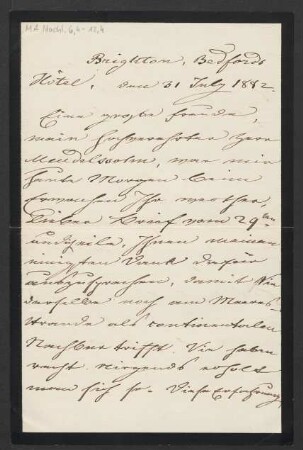 MA Nachl. 6,4-12,4
Brighton, Bedford
Hôtel, den 31 July 1882.
Eine große Freude,
mein hochverehrter Herr
Mendelssohn, war mir
heute Morgen beim
Erwachen Ihr werther,
lieber Brief vom 29ten
und ich eile, Ihnen meinen
innigsten Dank dafür
auszusprechen, damit Sie
derselbe noch am Meeres-
Strande als continentalen
Nachbar trifft. Sie haben
recht. Nirgends erholt
man sich so. Diese Erfahrung